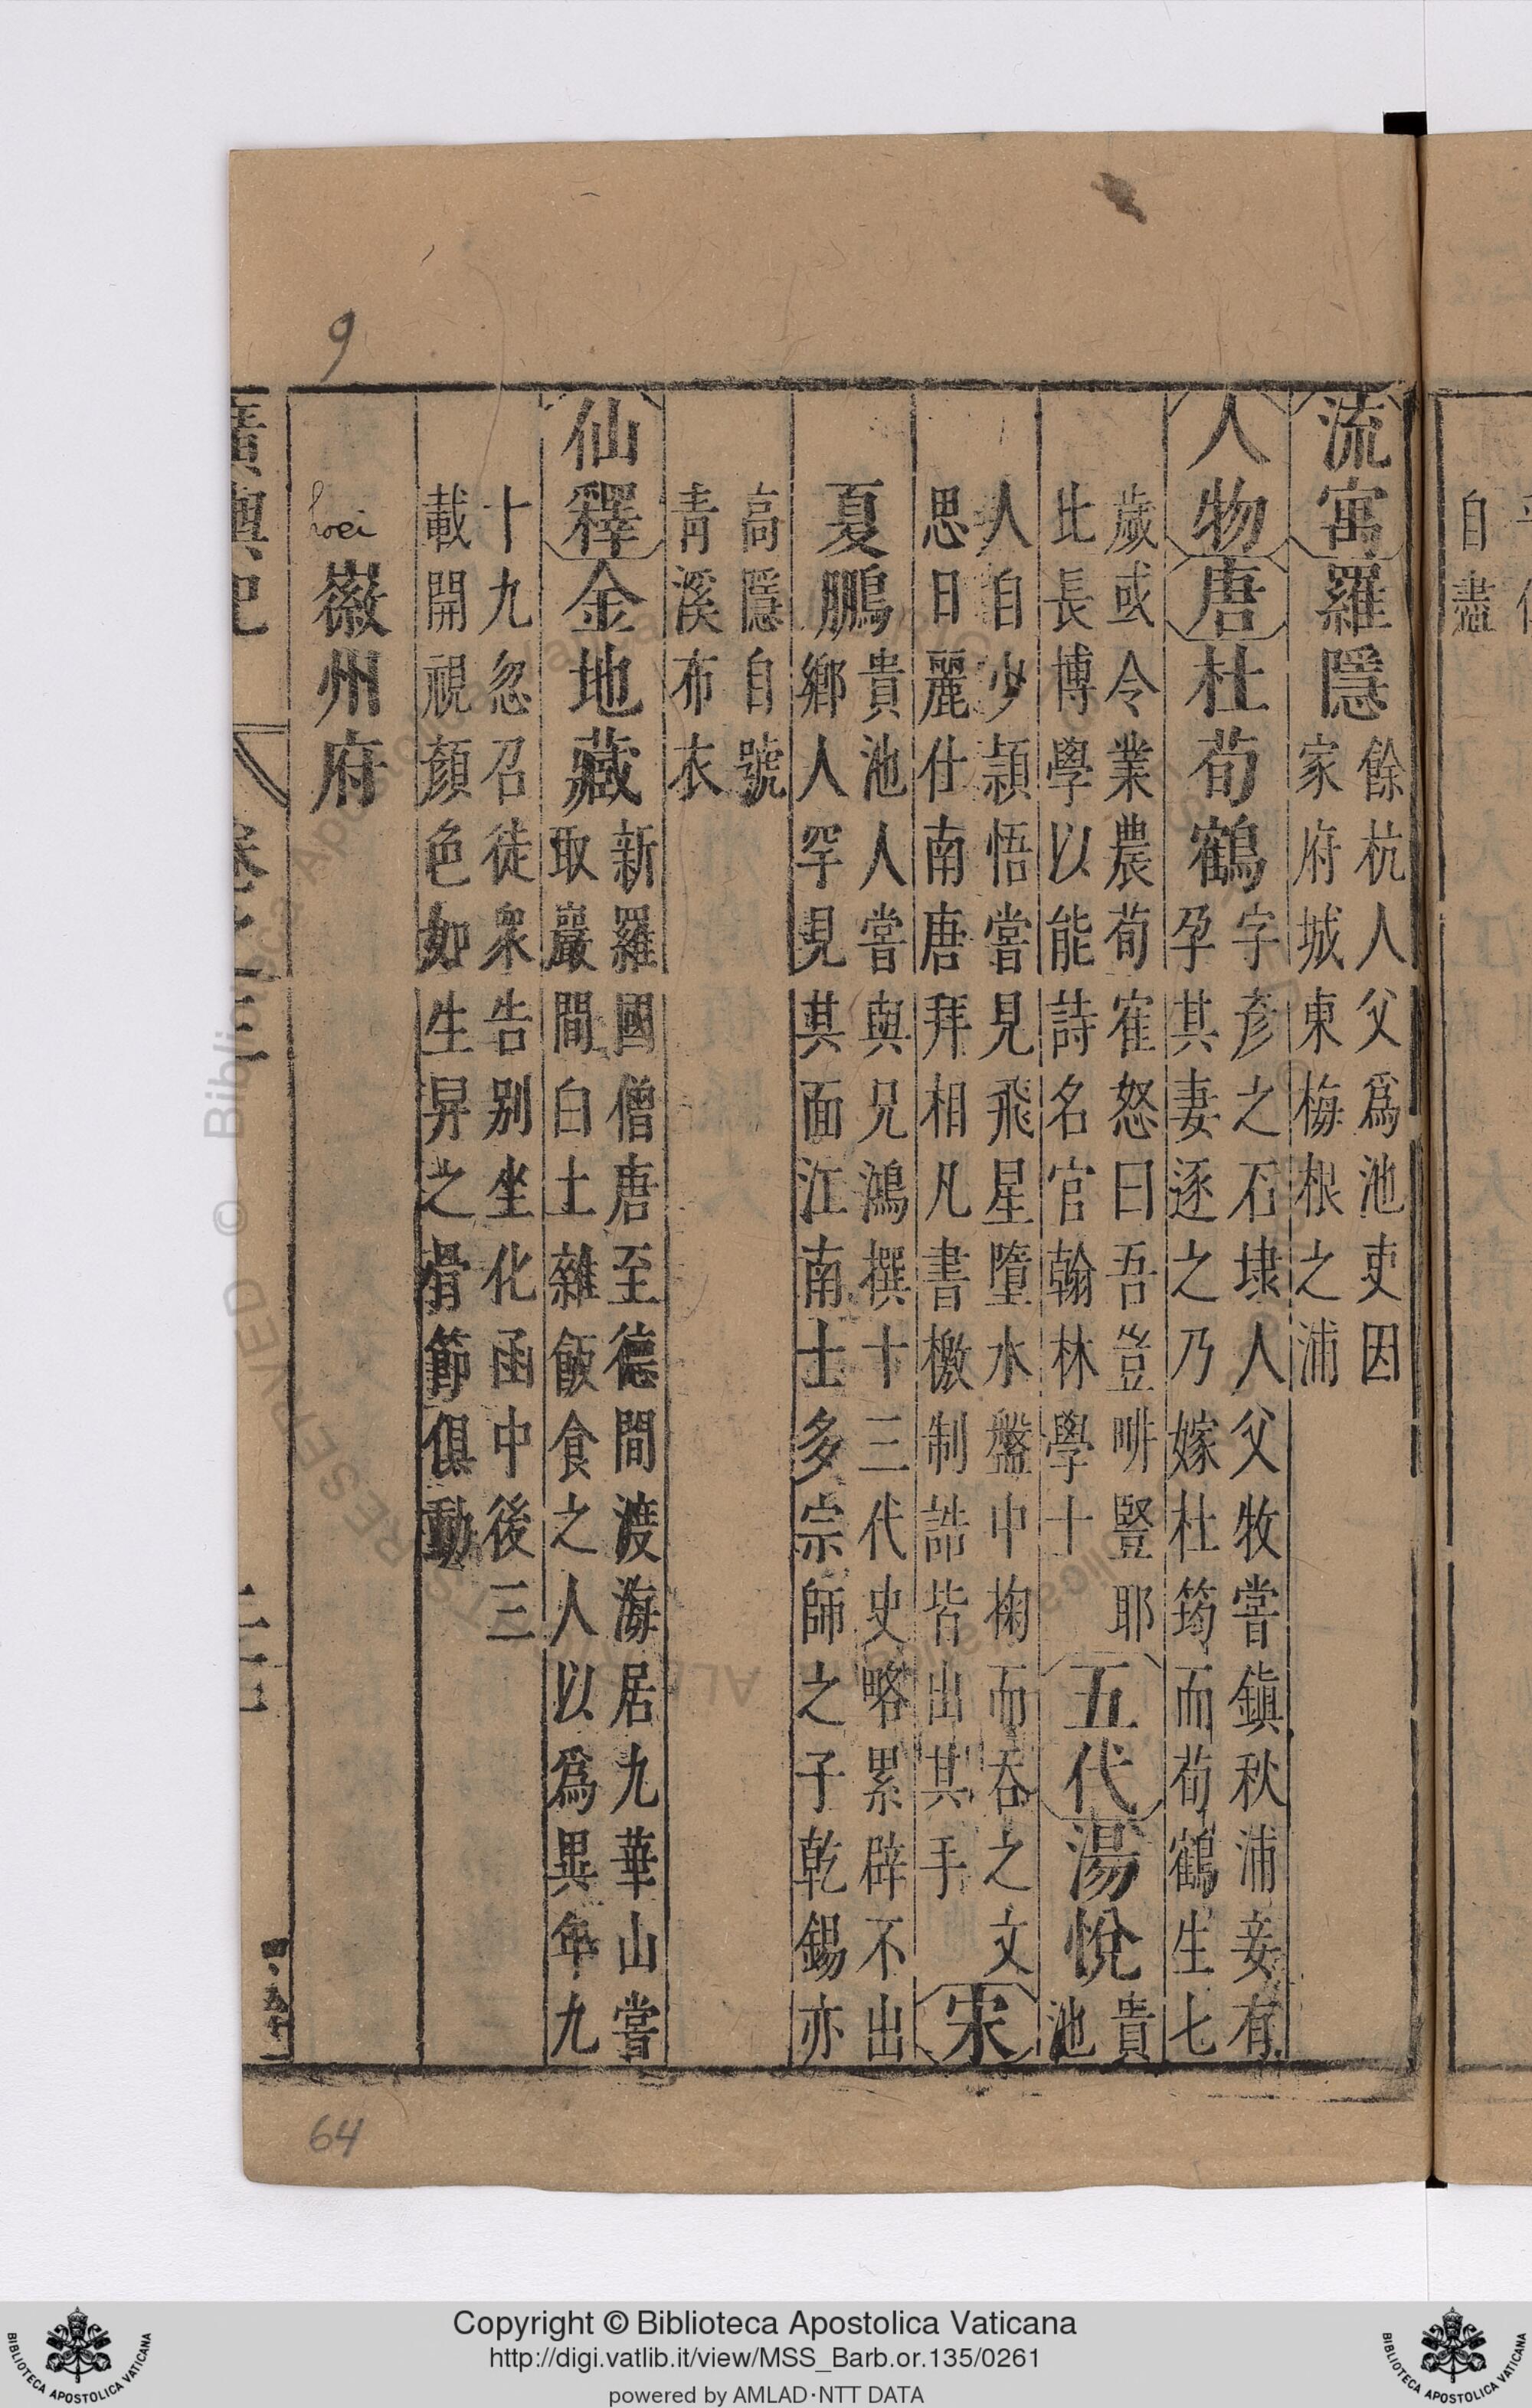 流寓羅隱餘杭人父爲池吏因
家府城東梅根之浦
人物唐杜荀鶴字彥之石埭人父牧嘗鎭秋浦妾有
孕其妻逐之乃嫁杜筠而荀鶴生七
歲或令業農荀寉怒曰吾豈啡豎耶五代湯悅貴
比長博學以能詩名官翰林學士池
人自少頴悟嘗見飛星墮水盤中掬而吞之文
思日麗仕南唐拜相凡書檄制誥皆出其手宋
夏鵬貴池人嘗與兄鴻撰十三代史略累辟不出
鄉人罕見其面江南士多宗師之子乾錫亦
高隱自號
靑溪布衣
仙釋金地藏新羅國僧唐至德間渡海居九華山嘗
取巖間白土雜飯食之人以爲異年九
十九忽召徒衆告别坐化函中後三
載開視顏色如生舁之骨節俱動
hoei
徽州府
廣輿記
卷之三
自盡
9
64
Copyright © Biblioteca Apostolica Vaticana
http://digi.vatlib.it/view/MSS_Barb.or.135/0261
powered by AMLAD·NTT DATA
BIBLIOTECA APOSTOLICA VATICANA
BIBLIOTECA APOSTOLICA VATICANA